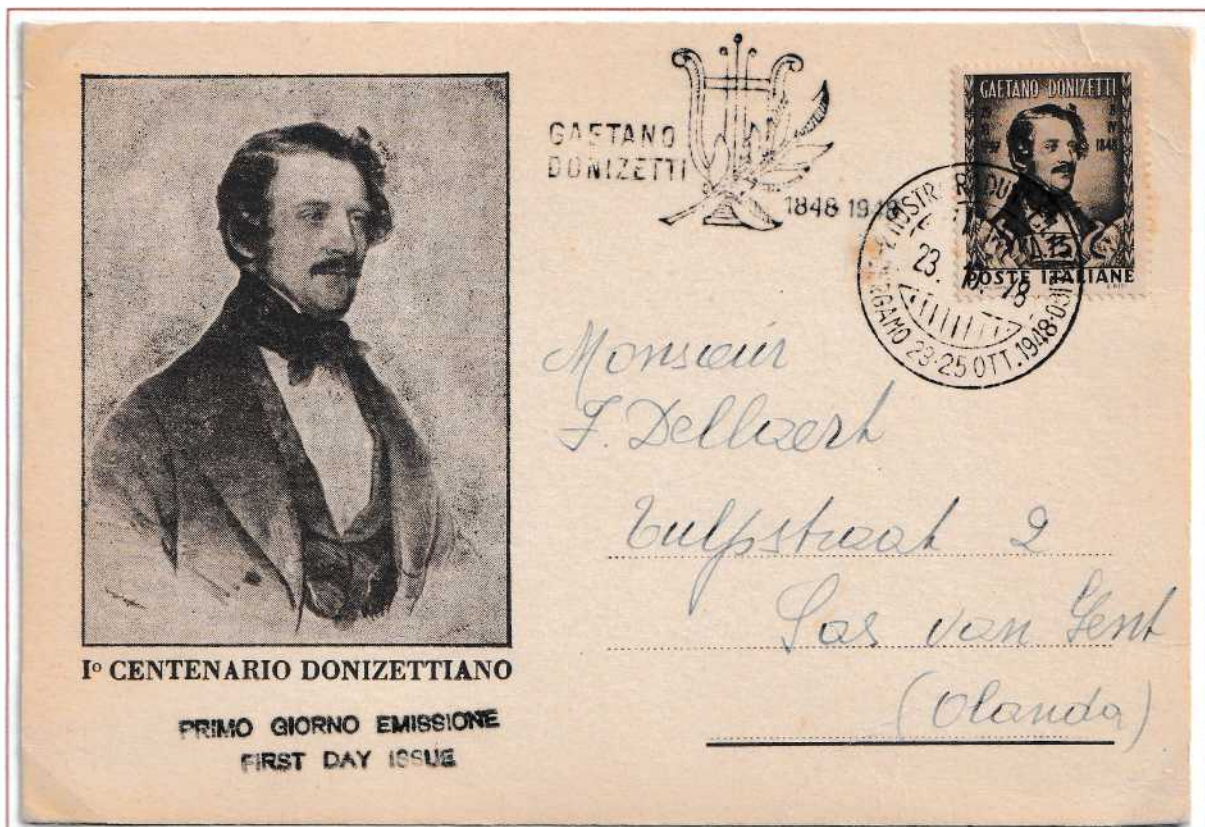 GAETANO
DONIZETTI
1848-1948
GAETANO DONIZETTI
1848
POSTE ITALIANE
23. 10. 48
BERGAMO 23-25 OTT. 1948
Monsieur
F. Dellaert
Tulpstraat 2
Sas van Gent
(Olanda)
Iº CENTENARIO DONIZETTIANO
PRIMO GIORNO EMISSIONE
FIRST DAY ISSUE